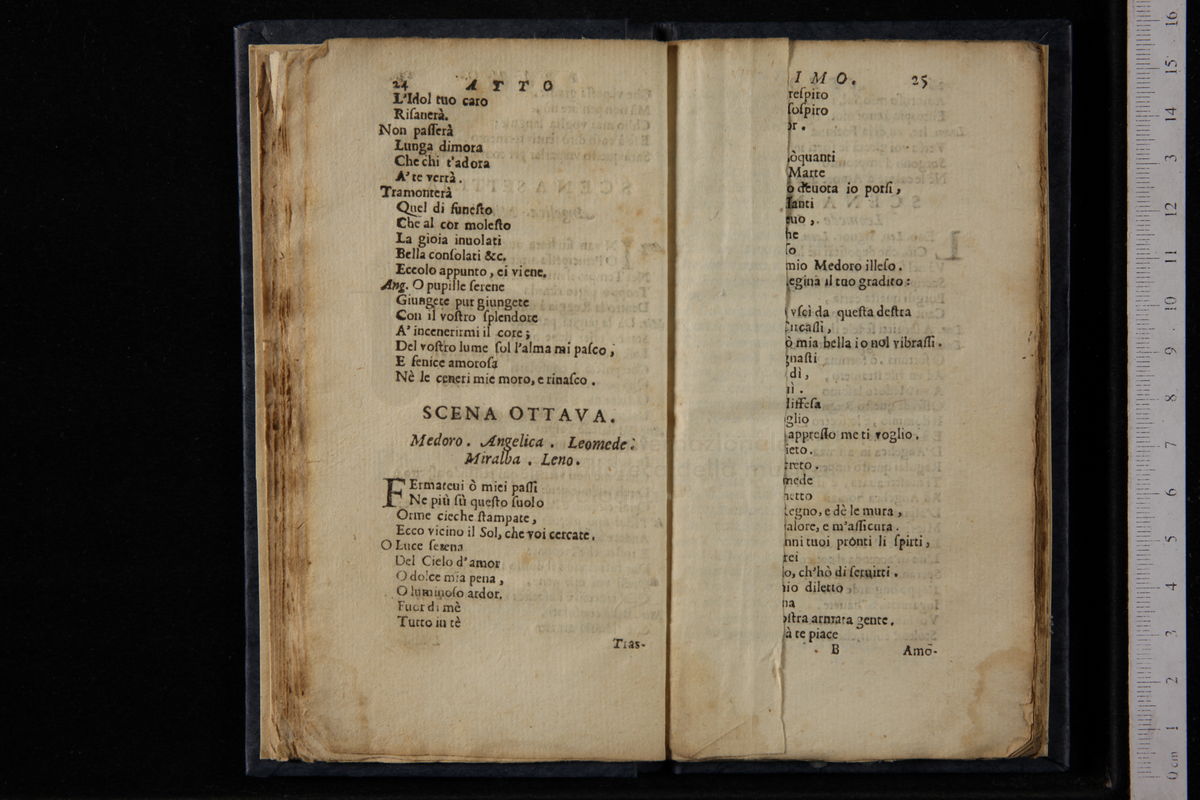 24 ATTO
L'Idol tuo caro
Risanerà.
Non passerà
Lunga dimora
Che chi t'adora
A' te verrà.
Tramonterà
Quel di funesto
Che al cor molesto
La gioia inuolati
Bella consolati &c.
Eccolo appunto, ei viene.
Ang. O pupille serene
Giungete pur giungete
Con il vostro splendore
A' incenerirmi il core;
Del vostro lume sol l'alma mi pasco,
E fenice amorosa
Nè le ceneri mie moro, e rinasco.
SCENA OTTAVA.
Medoro. Angelica. Leomede:
Miralba. Leno.
FErmateui ò miei passi
Ne più sù questo suolo
Orme cieche stampate,
Ecco vicino il Sol, che voi cercate.
O Luce serena
Del Cielo d'amor
O dolce mia pena,
O luminoso ardor.
Fuor di mè
Tutto in tè
Tras-
IMO. 25
respiro
sospiro
or.
òquanti
Marte
deuota io porsi,
tuo,
he
so
mio Medoro illeso.
egina il tuo gradito:
vscì da questa destra
ircassi,
ò mia bella io nol vibrassi.
gnasti
dì,
ì.
diffesa
glio
appresso me ti voglio.
ieto.
creto.
mede
netto
egno, e dè le mura,
alore, e m'assicura.
nni tuoi pronti li spirti,
rei
o, ch'hò di seruirti.
io diletto
na
ostra armata gente.
à te piace
B Amo-